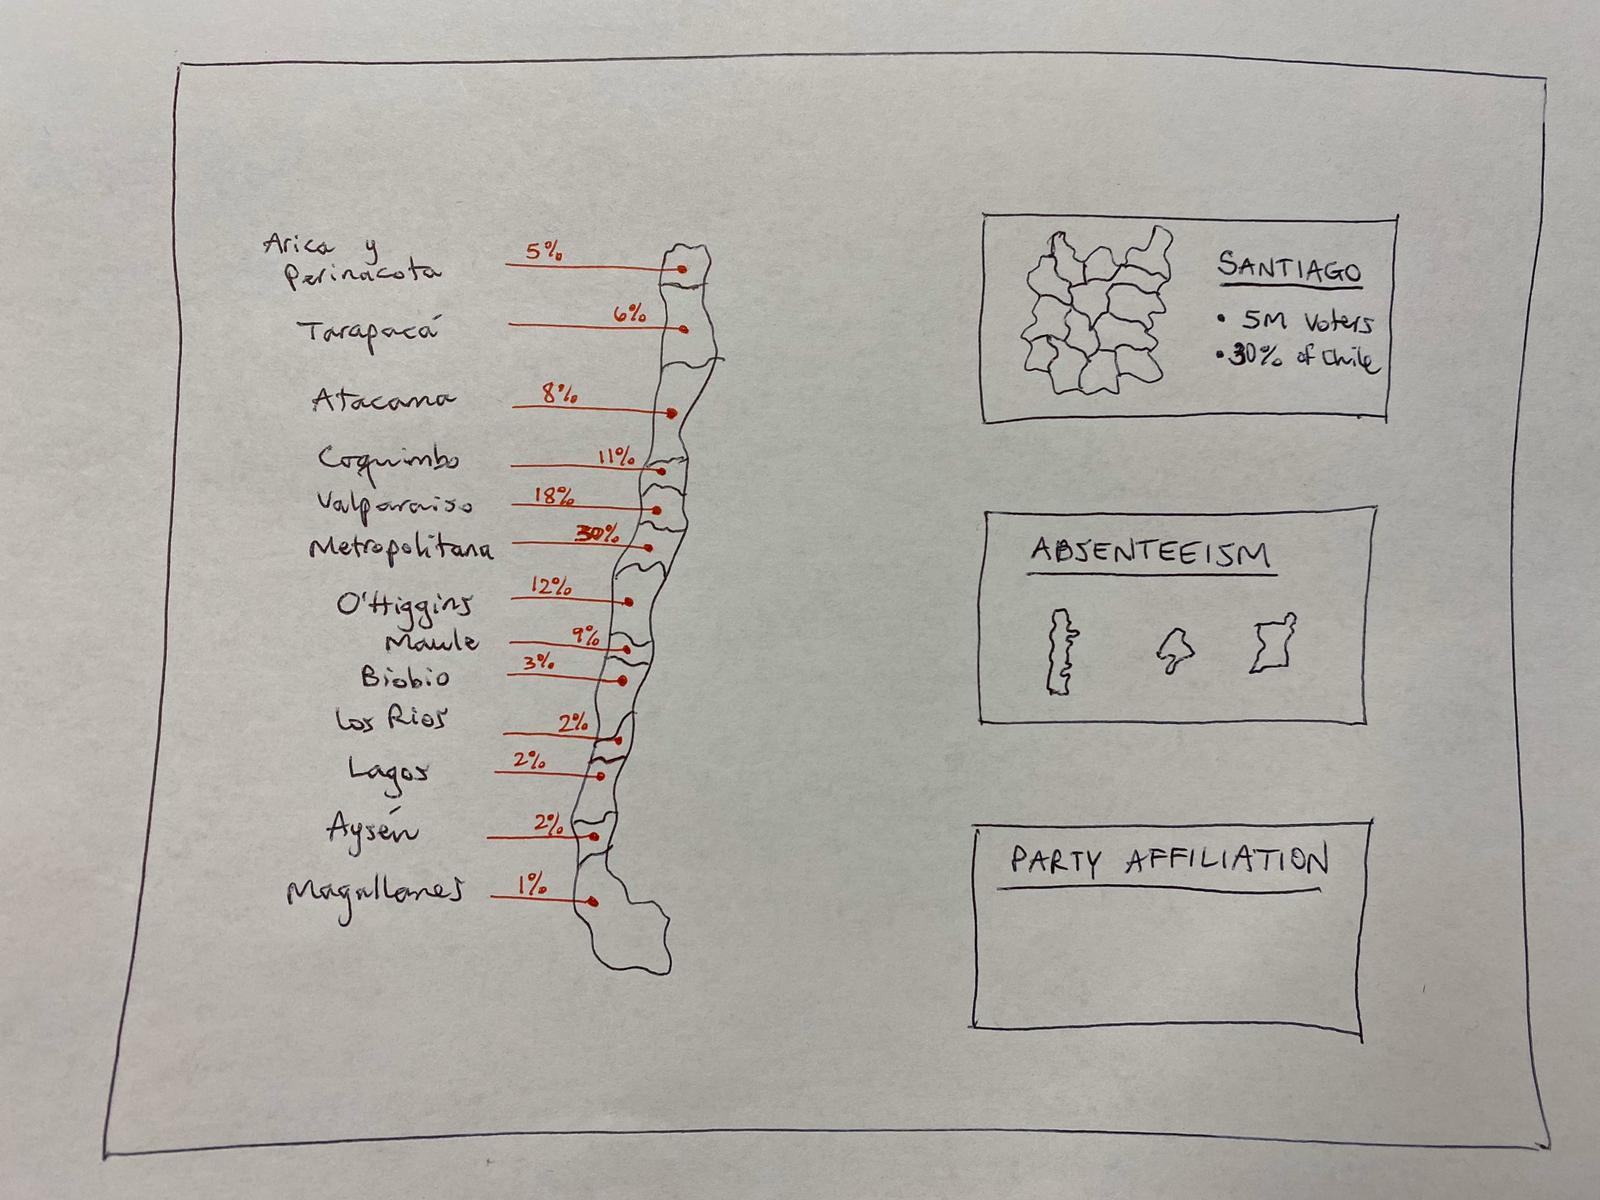 Arica y
Perinacota
5%
Tarapacá
6%
Atacama
8%
Coquimbo
11%
Valparaiso
18%
Metropolitana
30%
O'Higgins
12%
Maule
9%
Biobio
3%
Los Rios
2%
Lagos
2%
Aysén
2%
Magallanes
1%
SANTIAGO
• 5M Voters
• 30% of Chile
ABSENTEEISM
PARTY AFFILIATION